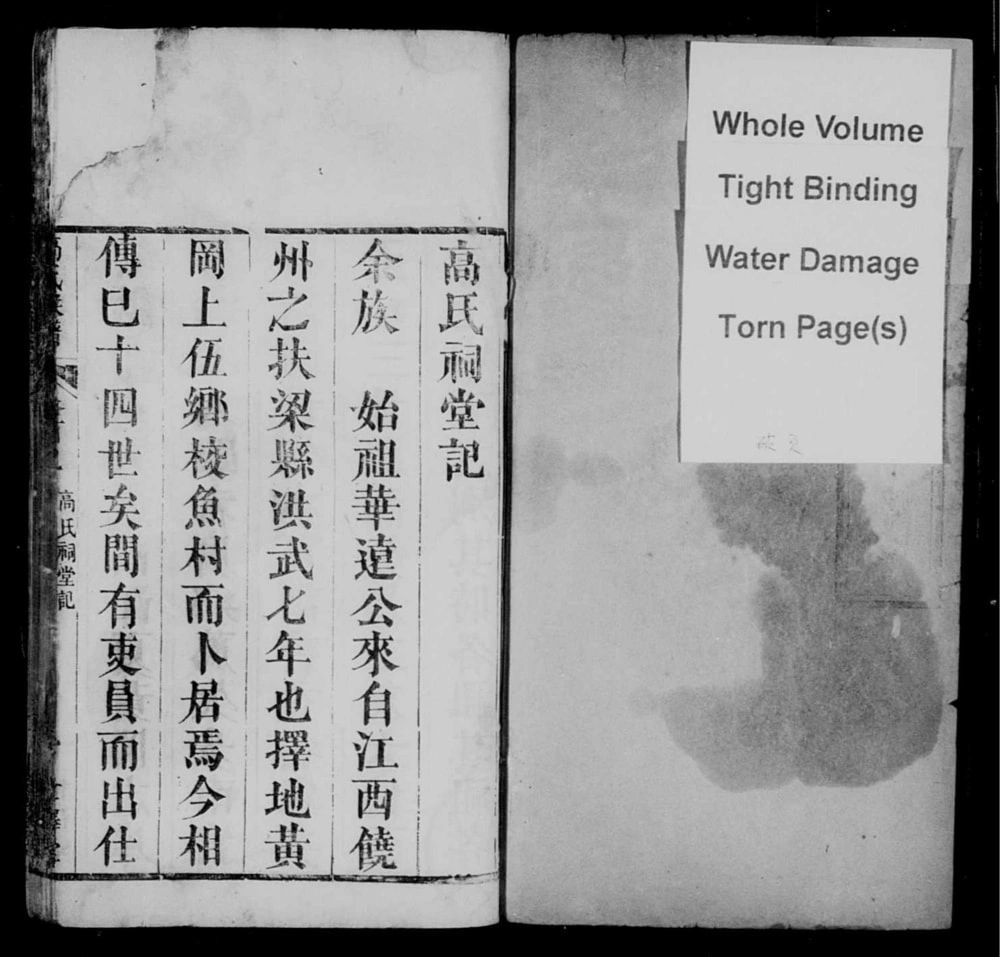 Whole Volume
Tight Binding
Water Damage
Torn Page(s)
高氏祠堂記
余族 始祖華遠公來自江西饒
州之扶梁縣洪武七年也擇地黃
岡上伍鄉校魚村而卜居焉今相
傳巳十四世矣間有吏員而出仕
高氏祠堂記